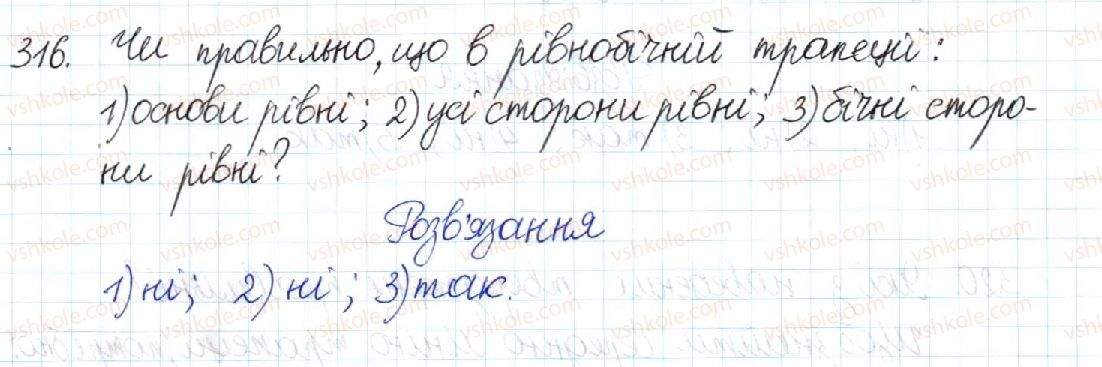 316. Чи правильно, що в рівнобічній трапеції:
1) основи рівні; 2) усі сторони рівні; 3) бічні сторо-
ни рівні?
Розв'язання
1) ні; 2) ні; 3) так.